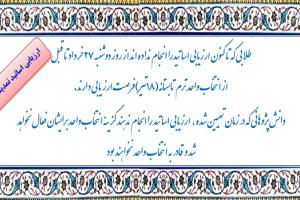 ارزیابی اساتید تمدید
طلابی که تاکنون ارزیابی اساتید را انجام نداده اند از روز دوشنبه ۲۷ خرداد تا قبل
از انتخاب واحد ترم تابستانه (۱۸تیر) فرصت ارزیابی دارند.
دانش پژوهانی که در زمان تعیین شده ، ارزیابی اساتید را انجام ندهند گزینه انتخاب واحد برایشان فعال نخواهد
شد و قادر به انتخاب واحد نخواهند بود